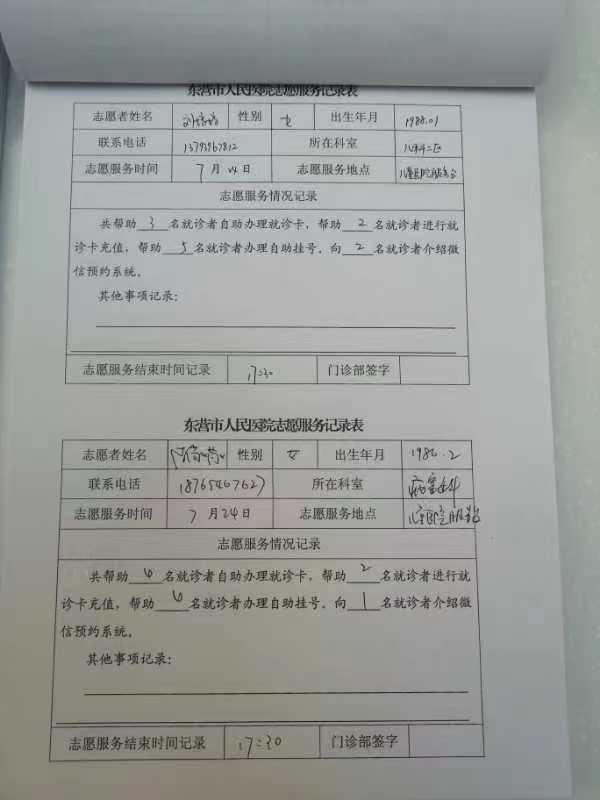 东营市人民医院志愿服务记录表
志愿者姓名 性别 女 出生年月 1988.01
联系电话 所在科室 儿科二区
志愿服务时间 7月24日 志愿服务地点
志愿服务情况记录
共帮助3名就诊者自助办理就诊卡，帮助2名就诊者进行就
诊卡充值，帮助5名就诊者办理自助挂号。向2名就诊者介绍微
信预约系统。
其他事项记录：
志愿服务结束时间记录 17:30 门诊部签字
东营市人民医院志愿服务记录表
志愿者姓名 性别 女 出生年月 1986.2
联系电话 18765467627 所在科室 病案科
志愿服务时间 7月24日 志愿服务地点
志愿服务情况记录
共帮助6名就诊者自助办理就诊卡，帮助2名就诊者进行就
诊卡充值，帮助6名就诊者办理自助挂号。向1名就诊者介绍微
信预约系统。
其他事项记录：
志愿服务结束时间记录 17:30 门诊部签字